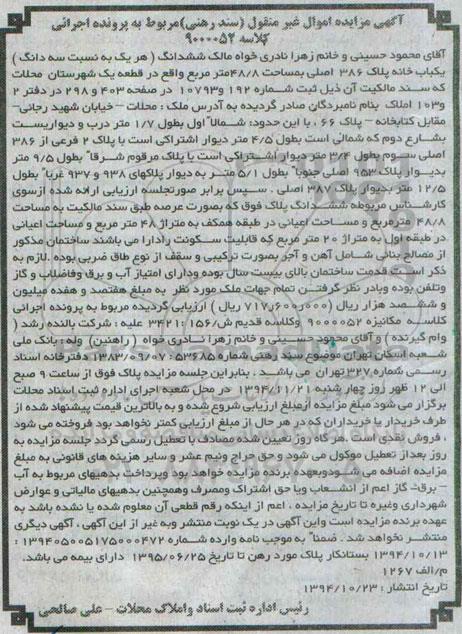 آگهی مزایده اموال غیر منقول (سند رهنی)مربوط به پرونده اجرائی
کلاسه ۹۰۰۰۰۵۲
آقای محمود حسینی و خانم زهرا نادری خواه مالک ششدانگ ( هر یک به نسبت سه دانگ )
یکباب خانه پلاک ۳۸۶ اصلی بمساحت ۴۸/۸متر مربع واقع در قطعه یک شهرستان محلات
که سند مالکیت آن ذیل ثبت شماره ۱۹۲ و۱۰۷۹۳ در صفحه ۴۰۳ و ۲۹۸ در دفتر ۲
و۱۰۳ املاک بنام نامبردگان صادر گردیده به آدرس ملک : محلات – خیابان شهید رجائی–
مقابل کتابخانه – پلاک ۶۶ ، با این حدود: شمالاً اول بطول ۱/۷ متر درب و دیواریست
بشارع دوم که شمالی است بطول ۴/۵ متر دیوار اشتراکی است با پلاک ۲ فرعی از ۳۸۶
اصلی سوم بطول ۳/۴ متر دیوار اشتراکی است با پلاک مرقوم شرقاً بطول ۹/۵ متر
بدیوار پلاک ۹۵۳ اصلی جنوباً بطول ۵/۱ متر به دیوار پلاکهای ۹۳۸ و ۹۳۷ غرباً بطول
۱۲/۵ متر بدیوار پلاک ۳۸۷ اصلی . سپس برابر صورتجلسه ارزیابی ارائه شده ازسوی
کارشناس مربوطه ششدانگ پلاک فوق که بصورت عرصه طبق سند مالکیت به مساحت
۴۸/۸ مترمربع و مساحت اعیانی در طبقه همکف به متراژ ۴۸ متر مربع و مساحت اعیانی
در طبقه اول به متراژ ۲۰ متر مربع که قابلیت سکونت رادارا می باشند ساختمان مذکور
از مصالح بنائی شامل آهن و آجر بصورت ترکیبی و سقف از نوع طاق ضربی بوده .لازم به
ذکر است قدمت ساختمان بالای بیست سال بوده ودارای امتیاز آب و برق وفاضلاب و گاز
وتلفن بوده وبادر نظر گرفتن تمام جهات ملک مورد نظر به مبلغ هفتصد و هفده میلیون
و ششصد هزار ریال (۷۱۷ر۶۰۰ر۰۰۰ ریال ) ارزیابی گردیده مربوط به پرونده اجرائی
کلاسه مکانیزه ۹۰۰۰۰۵۲ وکلاسه قدیم ش/۱۵۶:۳۴۲۱ علیه : شرکت بالنده رشد (
وام گیرنده ) و آقای محمود حسینی و خانم زهرا نادری خواه ( راهنین) وله : بانک ملی
شعبه اسکان تهران موضوع سند رهنی شماره ۵۳۶۸۵: ۱۳۸۳/۰۹/۰۷ دفترخانه اسناد
رسمی شماره ۳۲۷ تهران می باشد . بنابراین جلسه مزایده پلاک فوق از ساعت ۹ صبح
الی ۱۲ ظهر روز چهار شنبه ۱۳۹۴/۱۱/۲۱ در محل شعبه اجرای اداره ثبت اسناد محلات
برگزار می شود مبلغ مزایده ازمبلغ ارزیابی شروع شده و به بالاترین قیمت پیشنهاد شده از
طرف خریدار یا خریداران که در هر حال از مبلغ ارزیابی کمتر نخواهد بود فروخته می شود
، فروش نقدی است .هر گاه روز تعیین شده مصادف با تعطیل رسمی گردد جلسه مزایده به
روز بعداز تعطیل موکول می شود و حق حراج ونیم عشر و سایر هزینه های قانونی به مبلغ
مزایده اضافه می شودوبعهده برنده مزایده خواهد بود وپرداخت بدهیهای مربوط به آب
– برق– گاز اعم از انشعاب ویا حق اشتراک ومصرف وهمچنین بدهیهای مالیاتی و عوارض
شهرداری وغیره تا تاریخ مزایده ، اعم از اینکه رقم قطعی آن معلوم شده یا نشده باشد به
عهده برنده مزایده است واین آگهی در یک نوبت منتشر وبه غیر از این آگهی ، آگهی دیگری
منتشر نخواهد شد . ضمناً به موجب نامه وارده شماره ۱۳۹۴۰۵۰۰۵۱۷۵۰۰۰۴۷۲ :
۱۳۹۴/۱۰/۱۳ بستانکار پلاک مورد رهن تا تاریخ ۱۳۹۵/۰۶/۲۵ دارای بیمه می باشد.
م/الف ۱۲۶۷
تاریخ انتشار : ۱۳۹۴/۱۰/۲۳
رئیس اداره ثبت اسناد واملاک محلات – علی صالحی